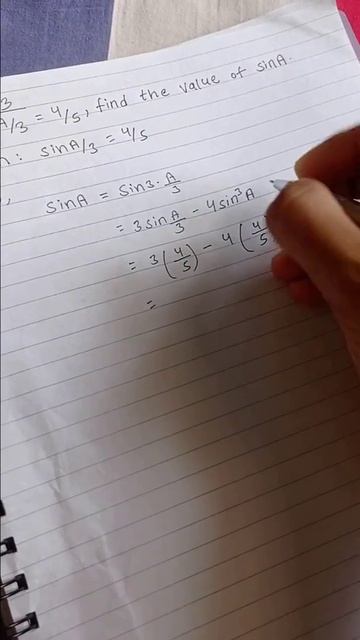 3
A/3 = 4/5, find the value of sinA.
n: sinA/3 = 4/5
sinA = sin3·A/3
= 3sinA/3 - 4sin³A
= 3(4/5) - 4(4/5)
=